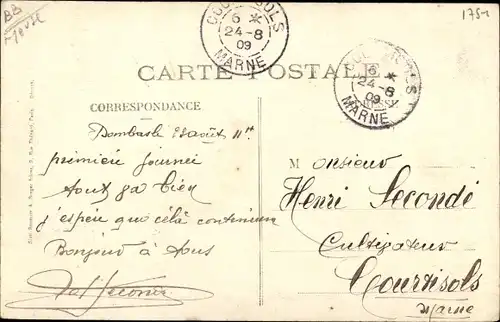 BB
COURTISOLS
6 *
24-8
09
MARNE
COURTISOLS
6 *
24-8
09
MARNE
CARTE POSTALE
CORRESPONDANCE
Dombasle 23 août
première journée
tout ça bien
j'espère que cela continuera
Bonjour à tous
Monsieur
Henri Secondé
Cultivateur
Courtisols
Marne